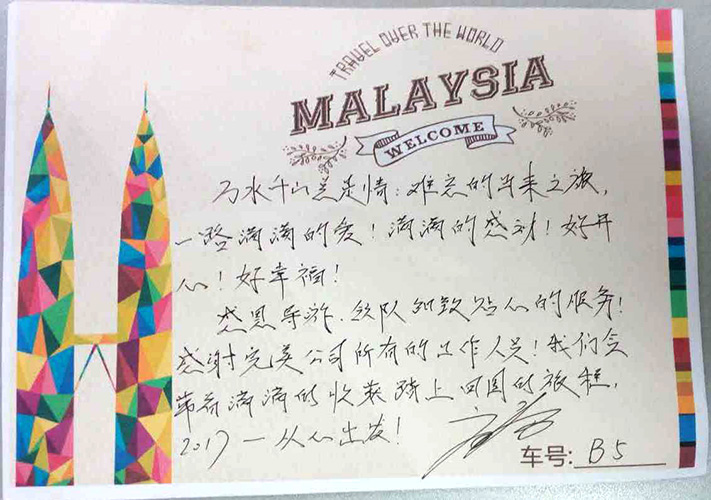 TRAVEL OVER THE WORLD
MALAYSIA
WELCOME
万水千山总是情：难忘的马来之旅，
一路满满的爱！满满的感动！好开
心！好幸福！
感恩导游、领队细致贴心的服务！
感谢完美公司所有的工作人员！我们会
带着满满的收获踏上回国的旅程，
2017一从心出发！
车号：B5